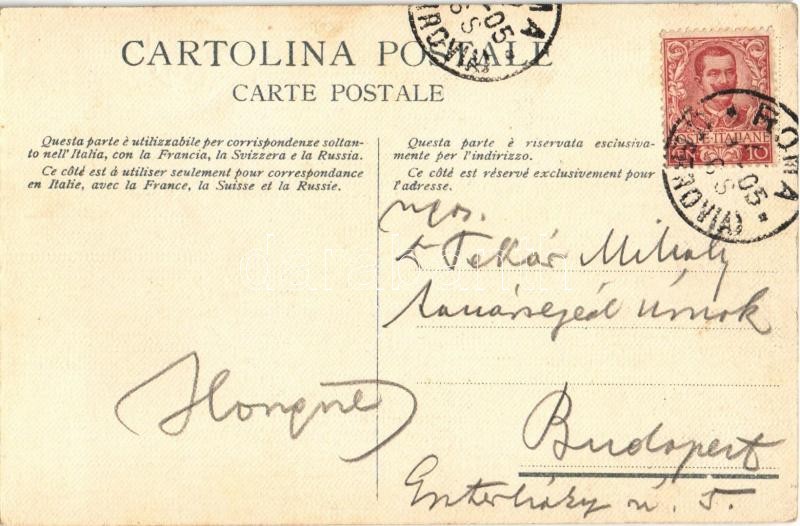 CARTOLINA POSTALE
CARTE POSTALE
Questa parte è utilizzabile per corrispondenze soltan-
to nell'Italia, con la Francia, la Svizzera e la Russia.
Ce côté est à utiliser seulement pour correspondance
en Italie, avec la France, la Suisse et la Russie.
Questa parte è riservata esclusiva-
mente per l'indirizzo.
Ce côté est réservé exclusivement pour
l'adresse.
POSTE ITALIANE
10
ROMA
05
(FERROVIA)
ROMA
05
(FERROVIA)
Ngos.
Dr Tekár Mihály
tanársegéd úrnak
Budapest
Esterházy u. 5.
Hongrie